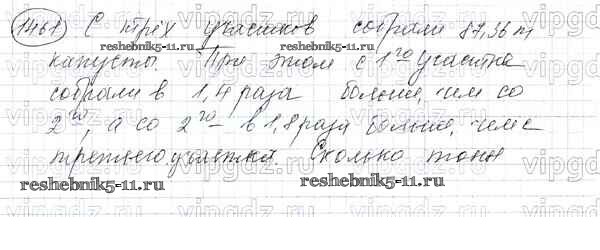 1461 С трёх участков собрали 87,36 т
reshebnik5-11.ru
reshebnik5-11.ru
капусты. При этом с 1го участка
собрали в 1,4 раза больше, чем со
2го, а со 2го в 1,8 раза больше, чем с
третьего участка. Сколько тонн
reshebnik5-11.ru
reshebnik5-11.ru